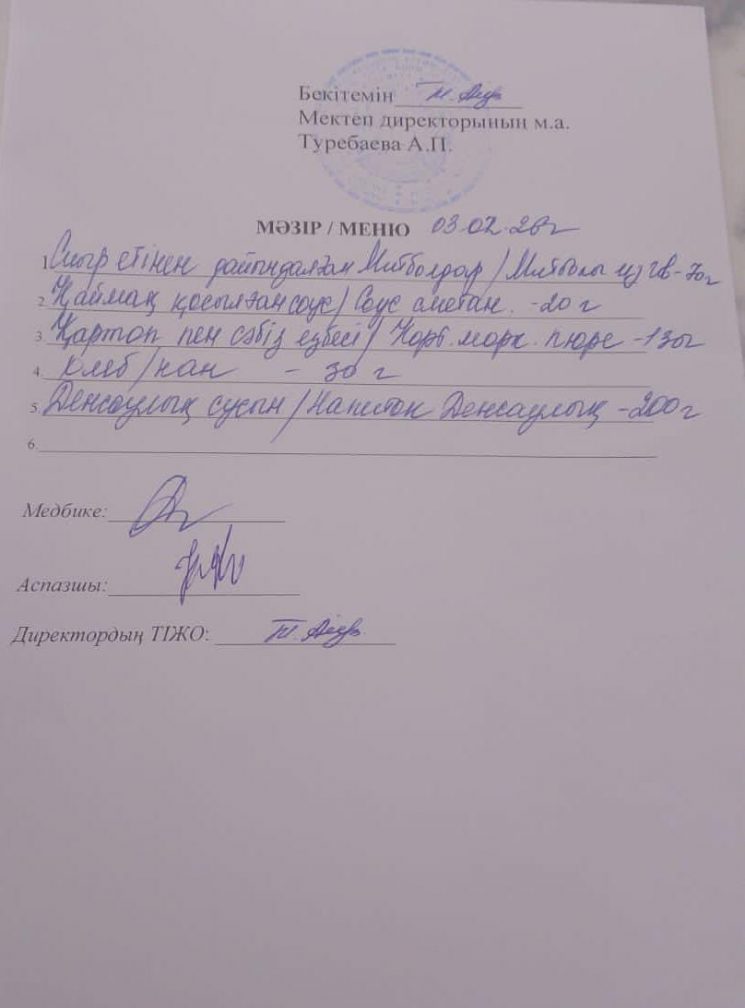 Бекітемін
Мектеп директорының м.а.
Туребаева А.П.
МӘЗІР / МЕНЮ 03.02.26г
1. Сиыр етінен дайындалған Митболдар / Митболы из гв - 70г
2. Қаймақ қосылған соус / Соус сметан. - 20 г
3. Қартоп пен сәбіз езбесі / Карт. морк. пюре - 130г
4. Хлеб / нан - 30 г
5. Денсаулық сусын / Напиток Денсаулық - 200г
6.
Медбике:
Аспазшы:
Директордың ТІЖО: